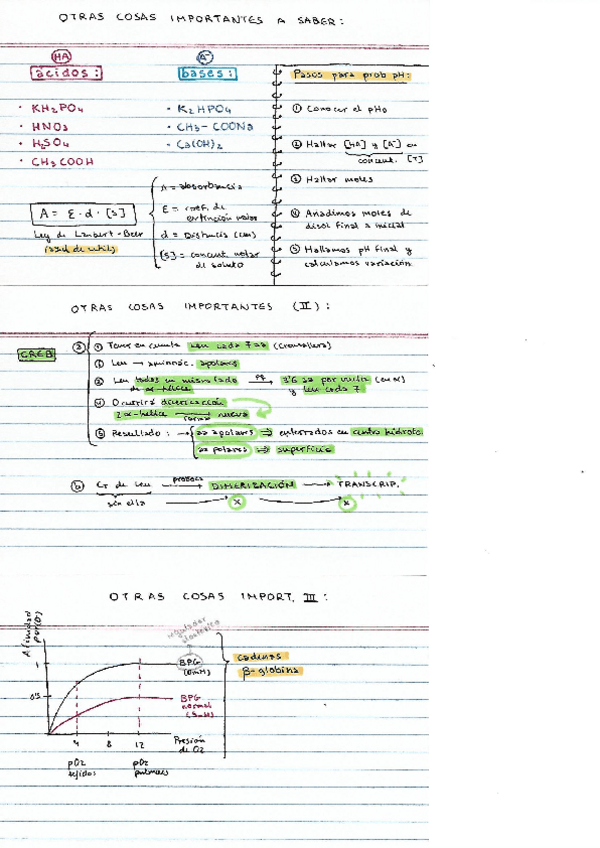 OTRAS COSAS IMPORTANTES A SABER:
HA
ácidos:
· KH2PO4
· HNO3
· H2SO4
· CH3COOH
A-
bases:
· K2HPO4
· CH3-COONa
· Ca(OH)2
Pasos para prob pH:
① Conocer el pH0
② Hallar [HA] y [A-] en
concent. [T]
③ Hallar moles
④ Añadimos moles de
disol final a inicial
⑤ Hallamos pH final y
calculamos variación
A = ε·d·[s]
Ley de Lambert-Beer
A = absorbancia
ε = coef. de
extinción molar
d = Distancia (cm)
[s] = concent. molar
de soluto
OTRAS COSAS IMPORTANTES (II):
CREB
ⓐ
① Tener en cuenta Leu cada 7 aa (cremallera)
② Leu → aminoác. apolares
③ Leu todos en mismo lado → 3'6 aa por vuelta (en α)
de α-hélice y Leu cada 7
④ Ocurrirá dimerización
2 α-hélice → nueva
⑤ Resultado: → aa apolares ⇒ enterrados en centro hidrofo.
aa polares ⇒ superficie
ⓑ Cr de Leu → DIMERIZACIÓN → TRANSCRIP.
sin ella → X → X
OTRAS COSAS IMPORT. III:
Afinidad
por (O)
regulador
alostérico
1
0'5
BPG
(0mM)
BPG
normal
(5mM)
4 8 12
Presión
de O2
pO2
tejidos
pO2
pulmones
cadenas
β-globina